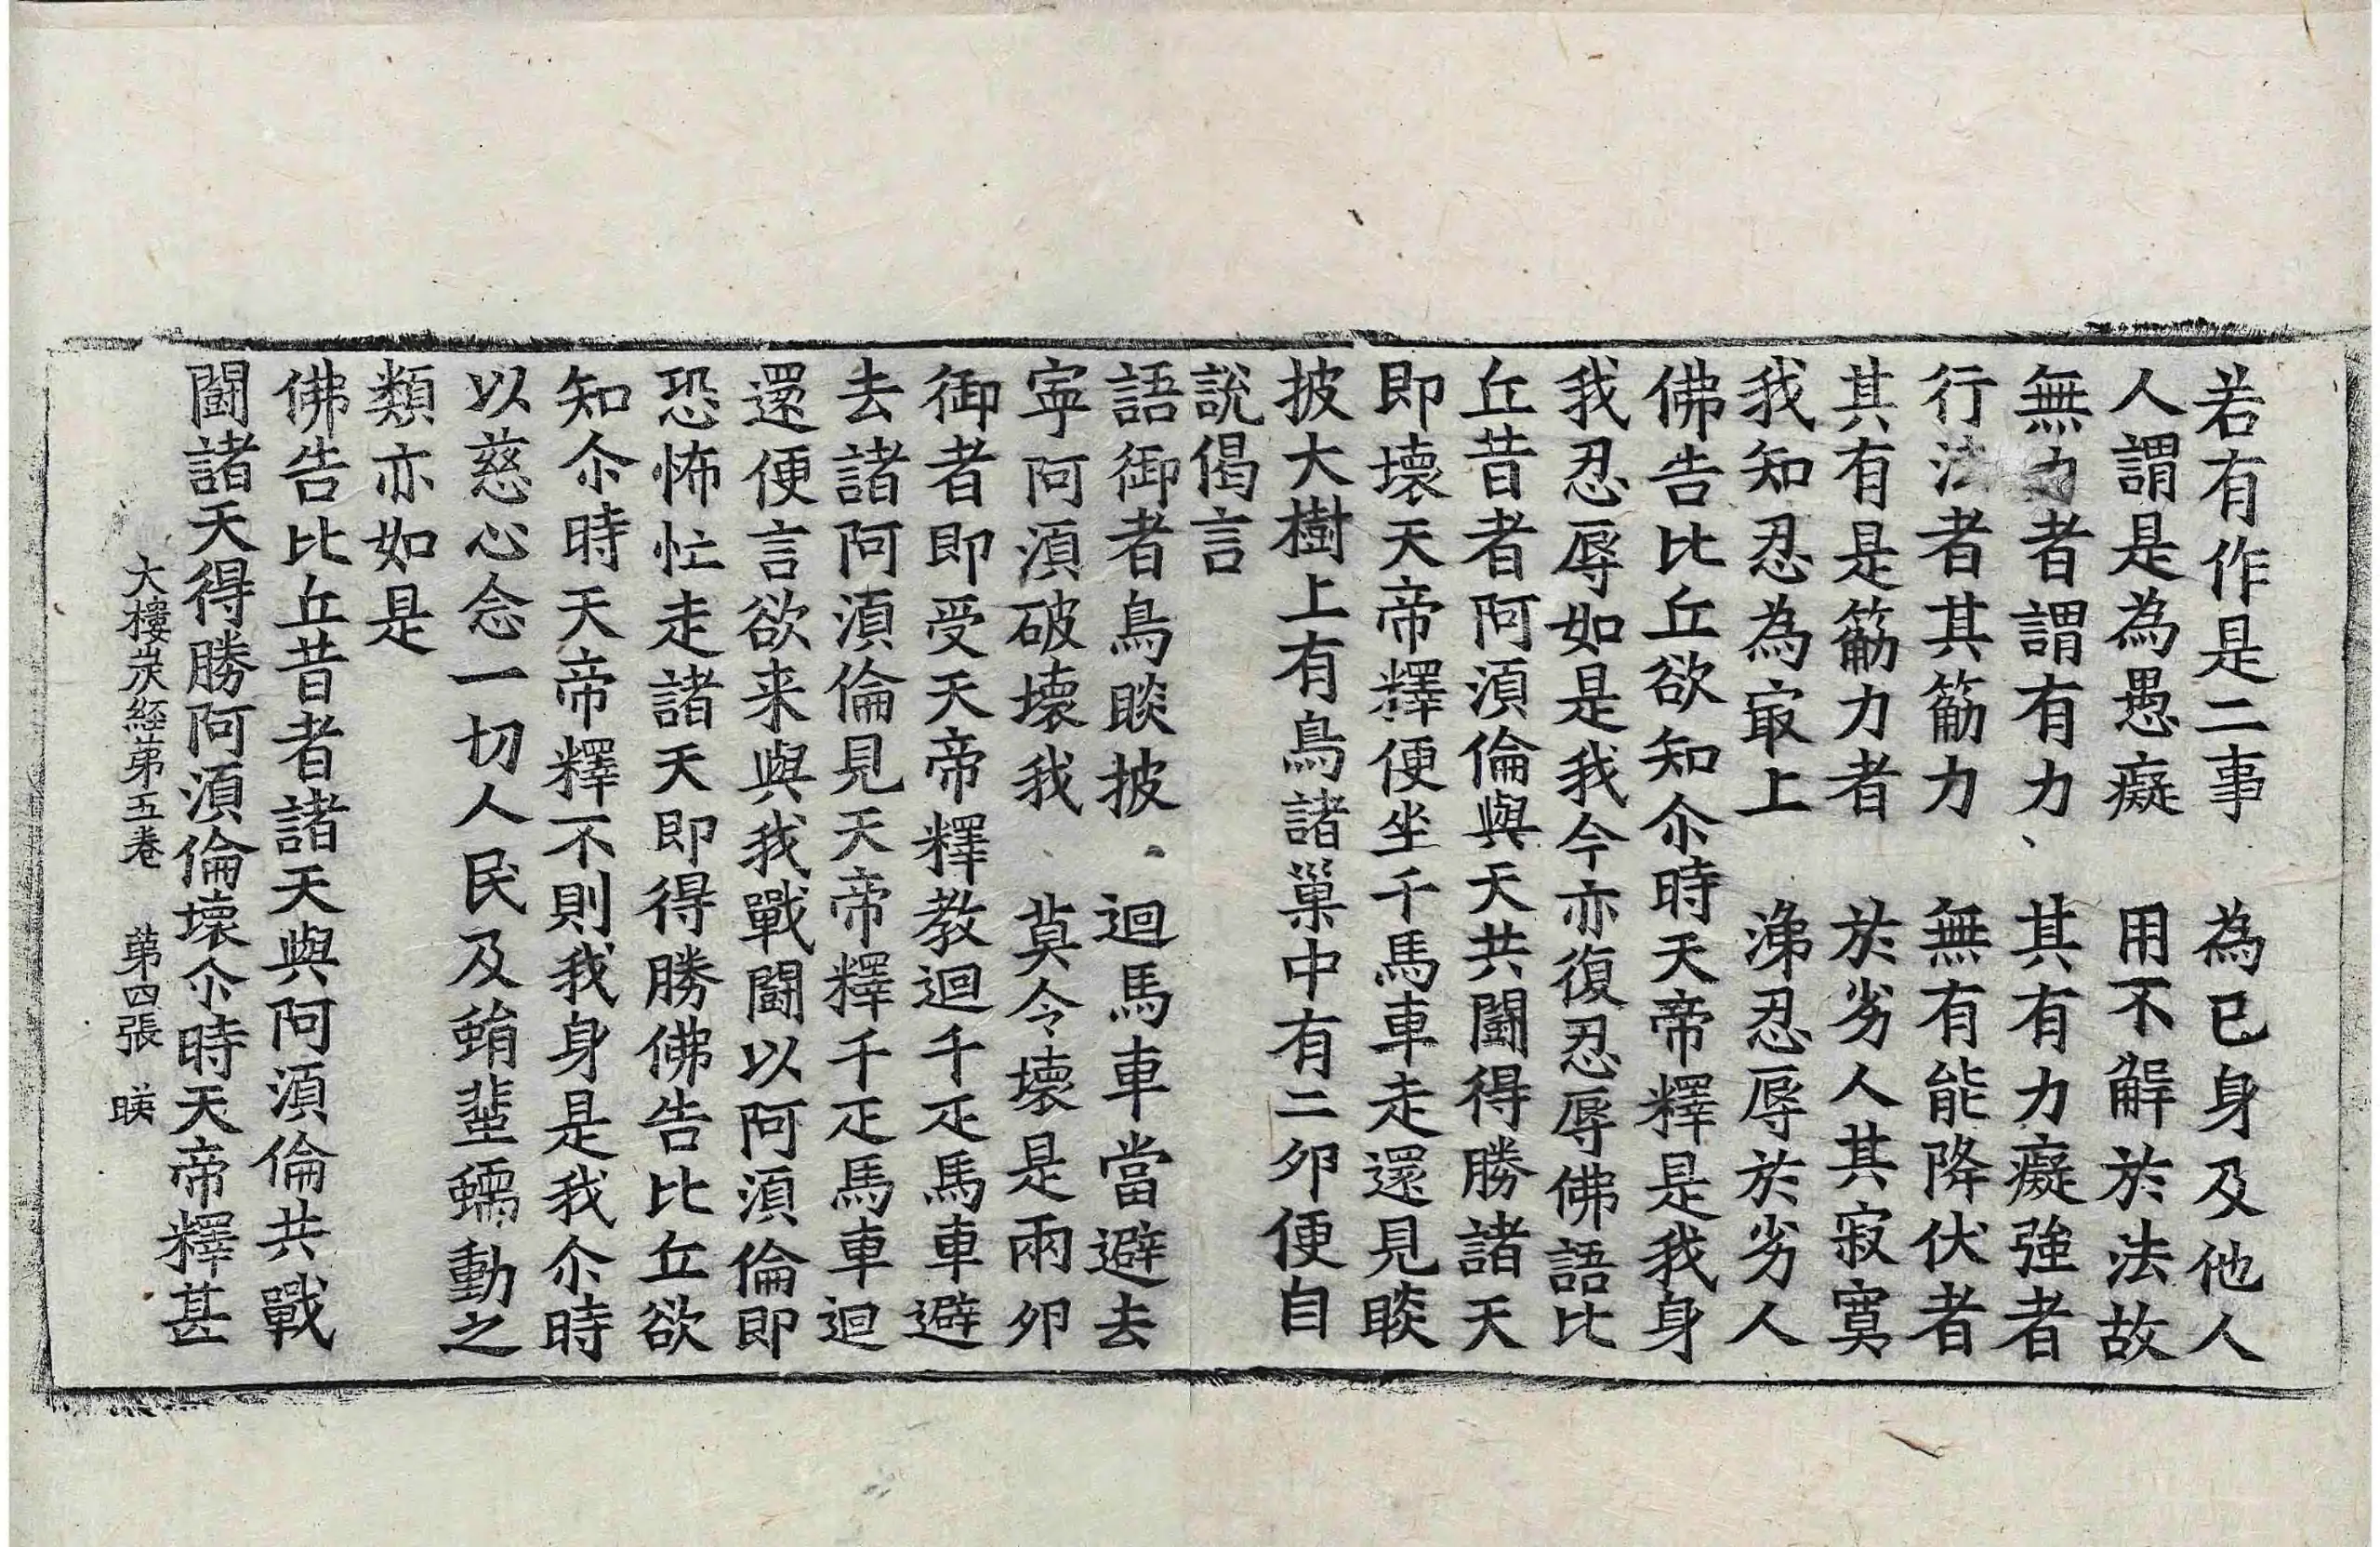 若有作是二事　為已身及他人
人謂是為愚癡　用不解於法故
無力者謂有力　其有力癡強者
行法者其筋力　無有能降伏者
其有是筋力者　於劣人其寂寞
我知忍為冣上　涕忍辱於劣人
佛告比丘欲知尒時天帝釋是我身
我忍辱如是我今亦復忍辱佛語比
丘昔者阿湏倫與天共鬪得勝諸天
即壞天帝釋便坐千馬車走還見睒
披大樹上有鳥諸巢中有二夘便自
說偈言
語御者鳥睒披　迴馬車當避去
寧阿湏破壞我　莫令壞是兩夘
御者即受天帝釋教迴千疋馬車避
去諸阿湏倫見天帝釋千疋馬車迴
還便言欲来與我戰鬪以阿湏倫即
恐怖忙走諸天即得勝佛告比丘欲
知尒時天帝釋不則我身是我尒時
以慈心念一切人民及蜎蜚蠕動之
類亦如是
佛告比丘昔者諸天與阿湏倫共戰
鬪諸天得勝阿湏倫壞尒時天帝釋甚
大樓炭經苐五卷　苐四張